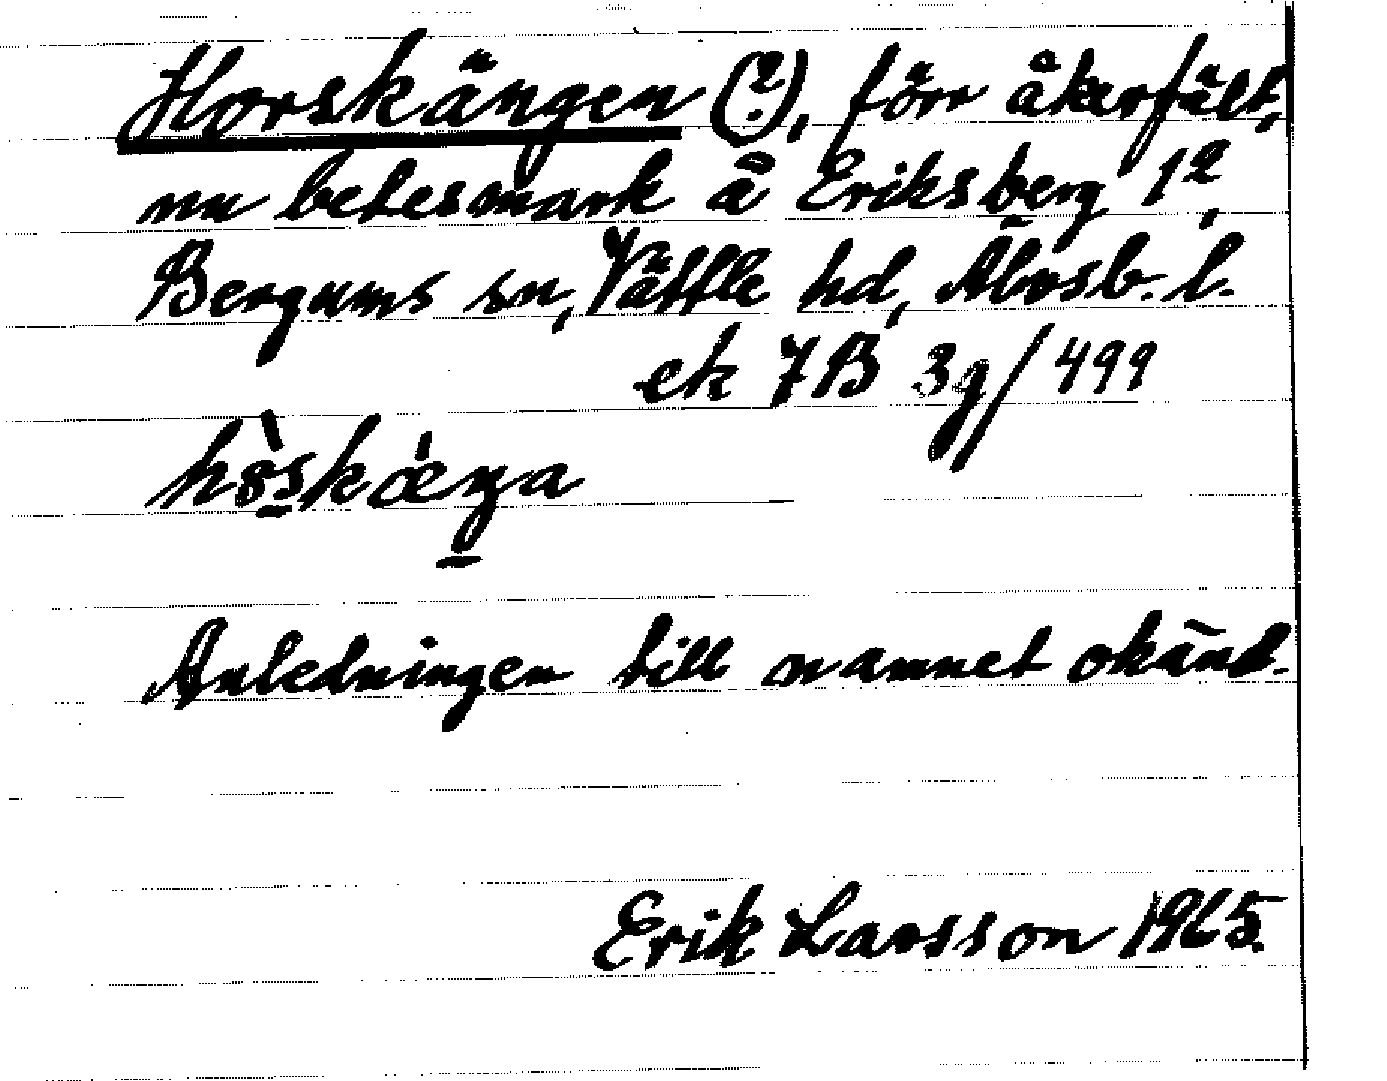 Horskängen (?), förr åkerfält,
nu betesmark å Eriksberg 1²,
Bergums sn, Vättle hd, Älvsb. l.
ek 7B 3g/499
Anledningen till namnet okänd.
Erik Larsson 1965.